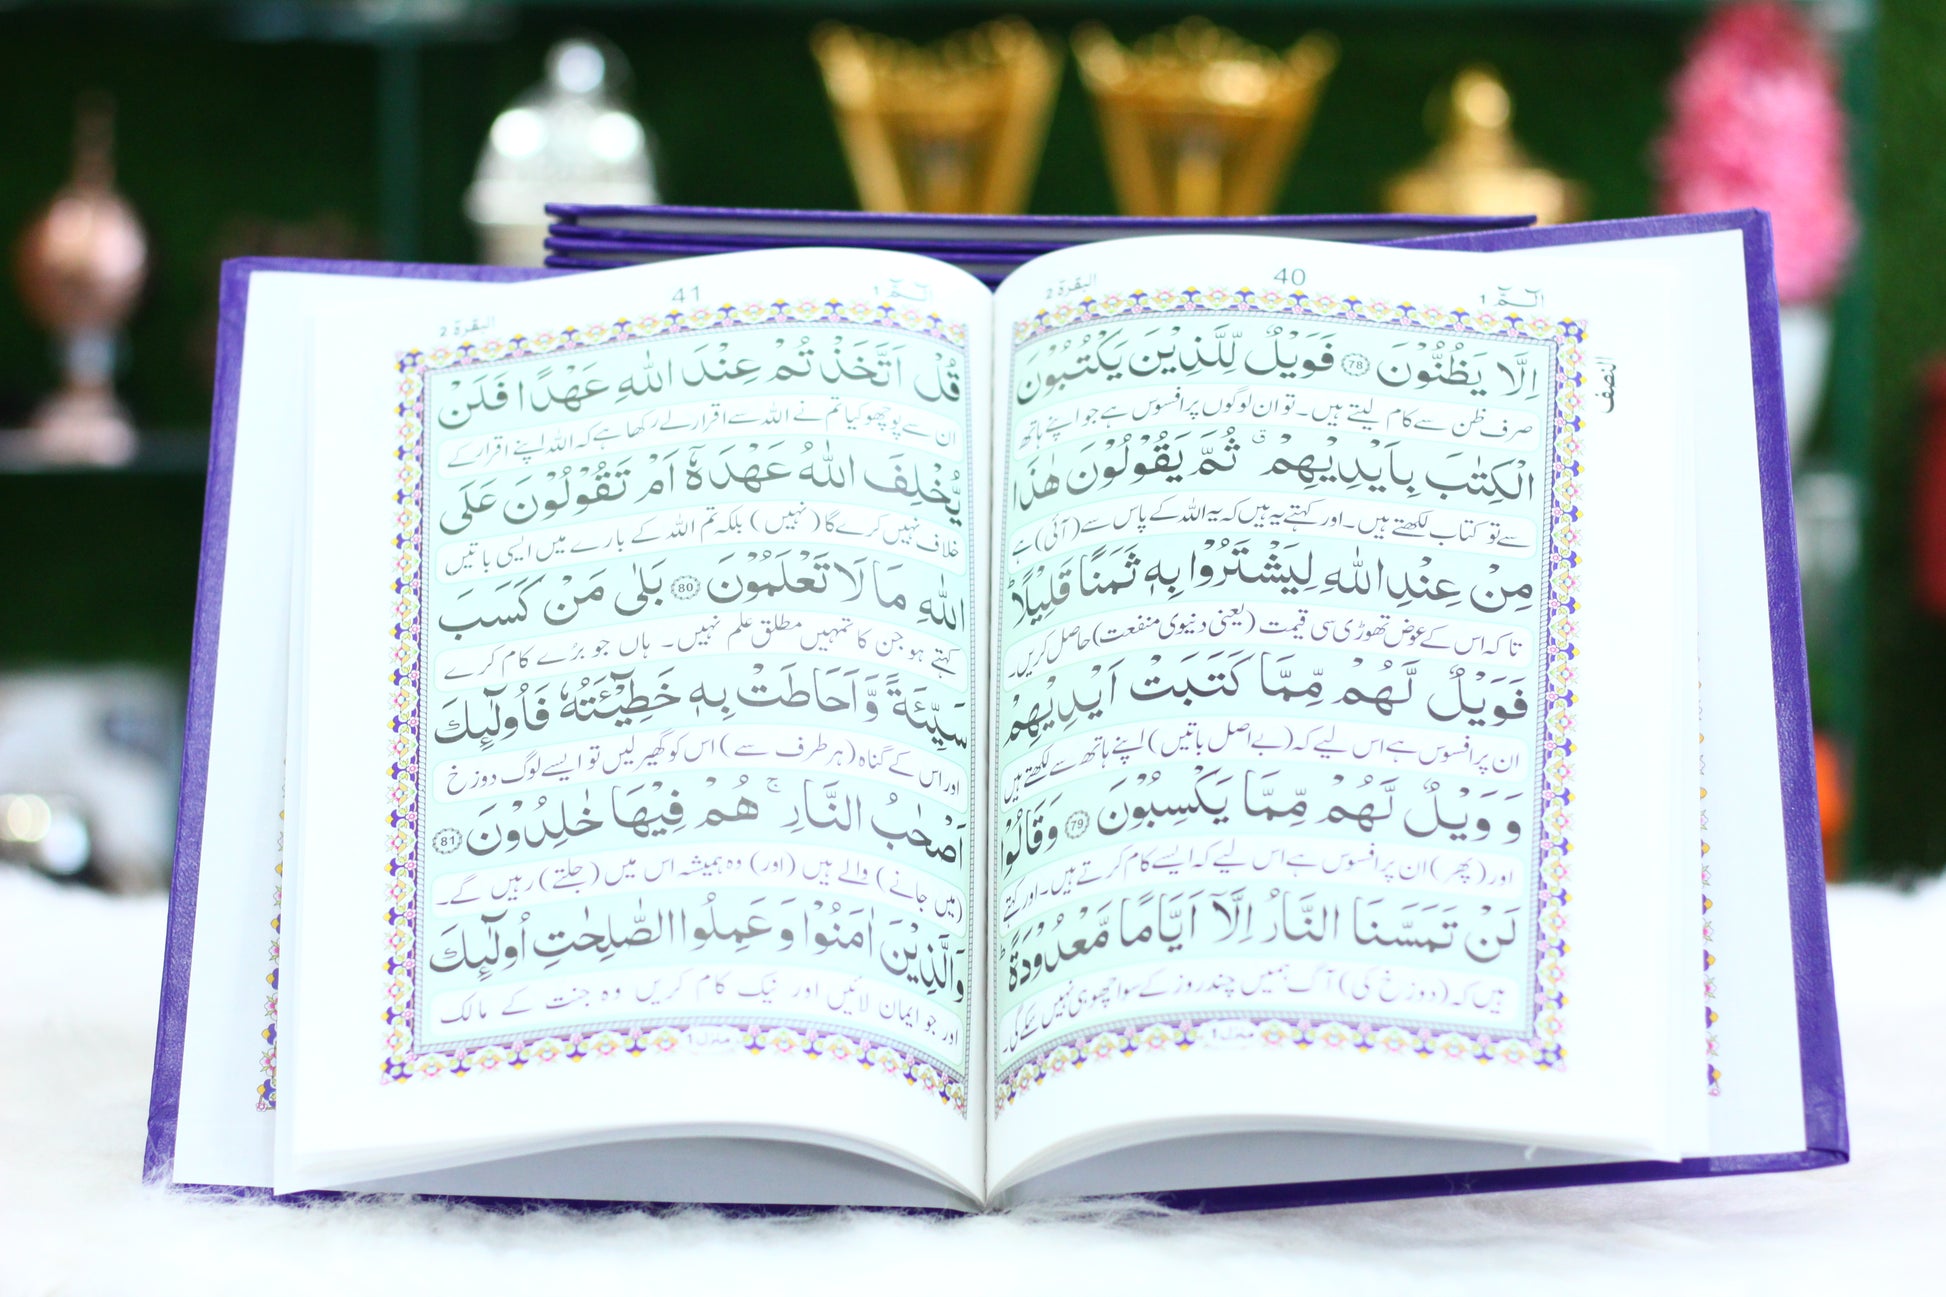 الٓـمّٓ 1
40
البقرة 2
اِلَّا يَظُنُّوْنَ ﴿78﴾ فَوَيْلٌ لِّلَّذِيْنَ يَكْتُبُوْنَ
صرف ظن سے کام لیتے ہیں۔ تو ان لوگوں پر افسوس ہے جو اپنے ہاتھ
الْكِتٰبَ بِاَيْدِيْهِمْ ۗ ثُمَّ يَقُوْلُوْنَ هٰذَا
سے تو کتاب لکھتے ہیں۔ اور کہتے یہ ہیں کہ یہ اللہ کے پاس سے (آئی) ہے
مِنْ عِنْدِ اللّٰهِ لِيَشْتَرُوْا بِهٖ ثَمَنًا قَلِيْلًا ؕ
تاکہ اس کے عوض تھوڑی سی قیمت (یعنی دنیوی منفعت) حاصل کریں۔
فَوَيْلٌ لَّهُمْ مِّمَّا كَتَبَتْ اَيْدِيْهِمْ
ان پر افسوس ہے اس لیے کہ (بے اصل باتیں) اپنے ہاتھ سے لکھتے ہیں
وَ وَيْلٌ لَّهُمْ مِّمَّا يَكْسِبُوْنَ ﴿79﴾ وَقَالُوْا
اور (پھر) ان پر افسوس ہے اس لیے کہ ایسے کام کرتے ہیں۔ اور کہتے
لَنْ تَمَسَّنَا النَّارُ اِلَّاۤ اَيَّامًا مَّعْدُوْدَةً ؕ
ہیں کہ (دوزخ کی) آگ ہمیں چند روز کے سوا چھو ہی نہیں سکے گی۔
منزل 1
النصف
الٓـمّٓ 1
41
البقرة 2
قُلْ اَتَّخَذْتُمْ عِنْدَ اللّٰهِ عَهْدًا فَلَنْ
ان سے پوچھو کیا تم نے اللہ سے اقرار لے رکھا ہے کہ اللہ اپنے اقرار کے
يُّخْلِفَ اللّٰهُ عَهْدَهٗۤ اَمْ تَقُوْلُوْنَ عَلَى
خلاف نہیں کرے گا (نہیں) بلکہ تم اللہ کے بارے میں ایسی باتیں
اللّٰهِ مَا لَا تَعْلَمُوْنَ ﴿80﴾ بَلٰى مَنْ كَسَبَ
کہتے ہو جن کا تمہیں مطلق علم نہیں۔ ہاں جو بُرے کام کرے
سَيِّئَةً وَّاَحَاطَتْ بِهٖ خَطِيْٓـَٔتُهٗ فَاُولٰٓئِكَ
اور اس کے گناہ (ہر طرف سے) اس کو گھیر لیں تو ایسے لوگ دوزخ
اَصْحٰبُ النَّارِ ۚ هُمْ فِيْهَا خٰلِدُوْنَ ﴿81﴾
(میں جانے) والے ہیں (اور) وہ ہمیشہ اس میں (جلتے) رہیں گے۔
وَالَّذِيْنَ اٰمَنُوْا وَعَمِلُوا الصّٰلِحٰتِ اُولٰٓئِكَ
اور جو ایمان لائیں اور نیک کام کریں وہ جنت کے مالک
منزل 1